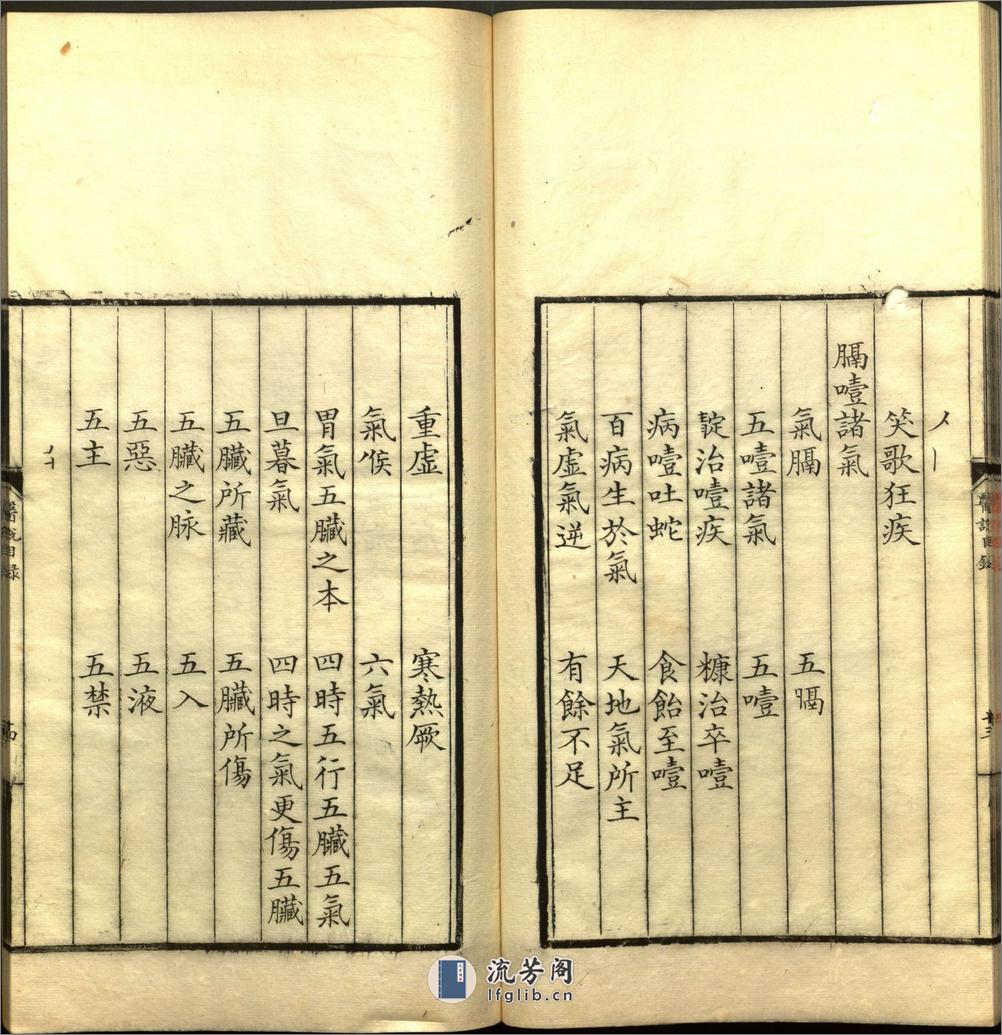 笑歌狂疾
膈噎諸氣
氣膈 五膈
五噎諸氣 五噎
靛治噎疾 糠治卒噎
病噎吐蛇 食飴至噎
百病生於氣 天地氣所主
氣虛氣逆 有餘不足
重虛 寒熱厥
氣候 六氣
胃氣五臟之本 四時五行五臟五氣
旦暮氣 四時之氣更傷五臟
五臟所藏 五臟所傷
五臟之脉 五入
五惡 五液
五主 五禁
流芳阁
lfglib.cn